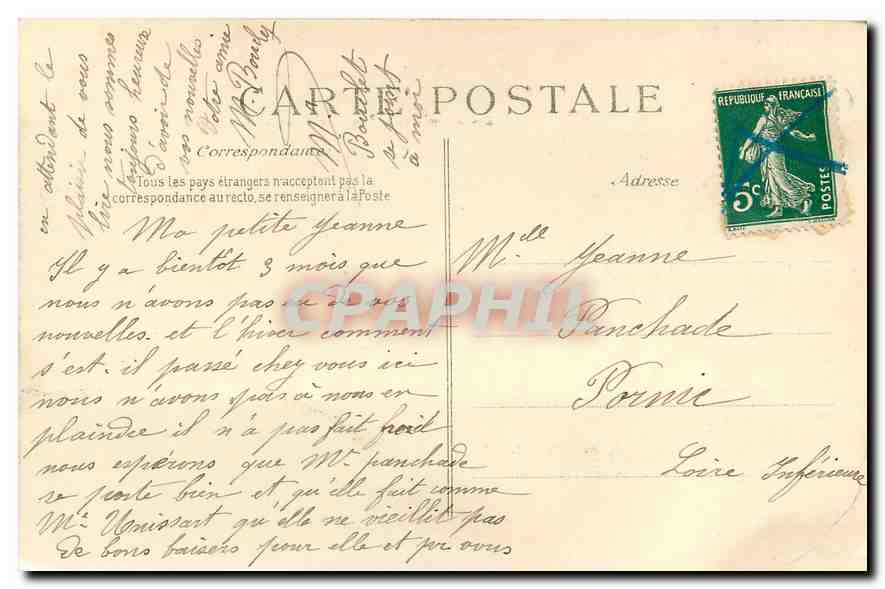 CARTE POSTALE
Correspondance
Tous les pays étrangers n'acceptent pas la
correspondance au recto, se renseigner à la Poste
Adresse
RÉPUBLIQUE FRANÇAISE
5c
POSTES
Ma petite Jeanne
Il y a bientôt 3 mois que
nous n'avons pas eu de vos
nouvelles. et l'hiver comment
s'est-il passé chez vous ici
nous n'avons pas à nous en
plaindre il n'a pas fait froid
nous espérons que Me panchade
se porte bien et qu'elle fait comme
Me Unissart qu'elle ne vieillit pas
De bons baisers pour elle et pr vous
en attendant le
plaisir de vous
lire nous sommes
toujours heureux
d'avoir de
vos nouvelles
Votre amie
M. Bourdy
se joint
à moi
Melle Jeanne
Panchade
Pornic
Loire Inférieure
CPAPHIL